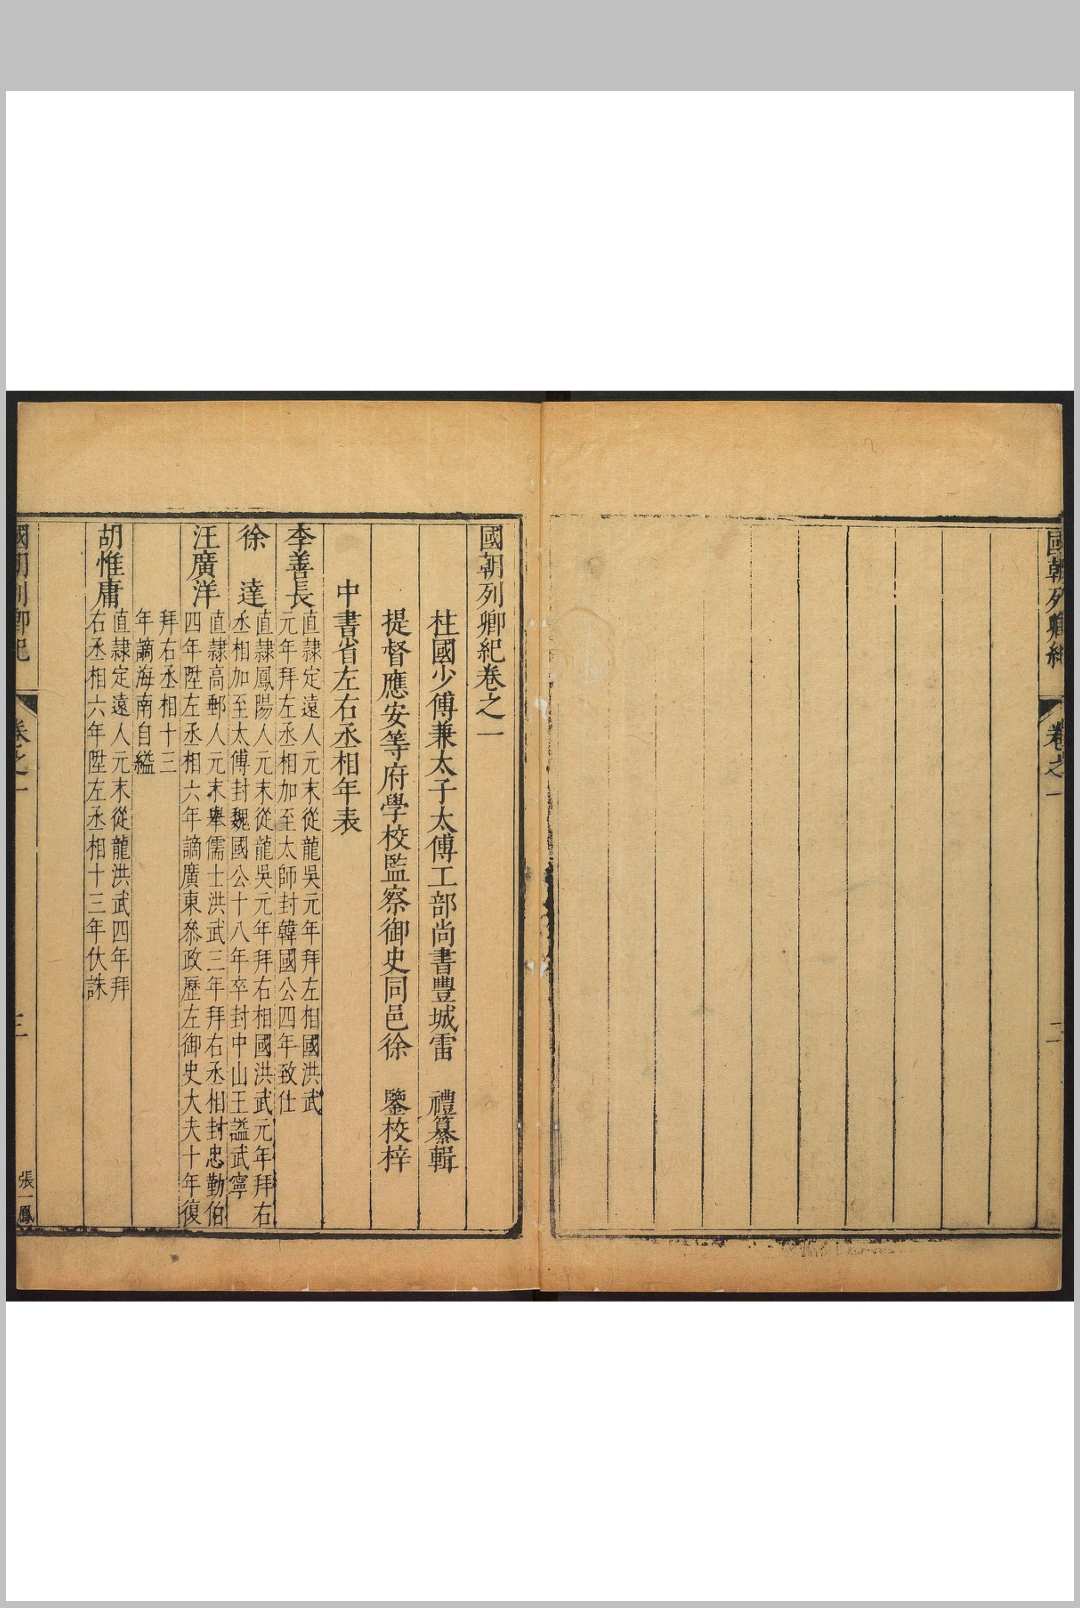 國朝列卿紀
卷之一
二
國朝列卿紀卷之一
柱國少傅兼太子太傅工部尚書豐城雷　禮纂輯
提督應安等府學校監察御史同邑徐　鑒校梓
中書省左右丞相年表
李善長
直隸定遠人元末從龍吳元年拜左相國洪武
元年拜左丞相加至太師封韓國公四年致仕
徐　達
直隸鳳陽人元末從龍吳元年拜右相國洪武元年拜右
丞相加至太傅封魏國公十八年卒封中山王謚武寧
汪廣洋
直隸高郵人元末舉儒士洪武三年拜右丞相封忠勤伯
四年陞左丞相六年謫廣東叅政歷左御史大夫十年復
拜右丞相十三
年謫海南自縊
胡惟庸
直隸定遠人元末從龍洪武四年拜
右丞相六年陞左丞相十三年伏誅
國朝列卿紀
卷之一
三
張一鳳